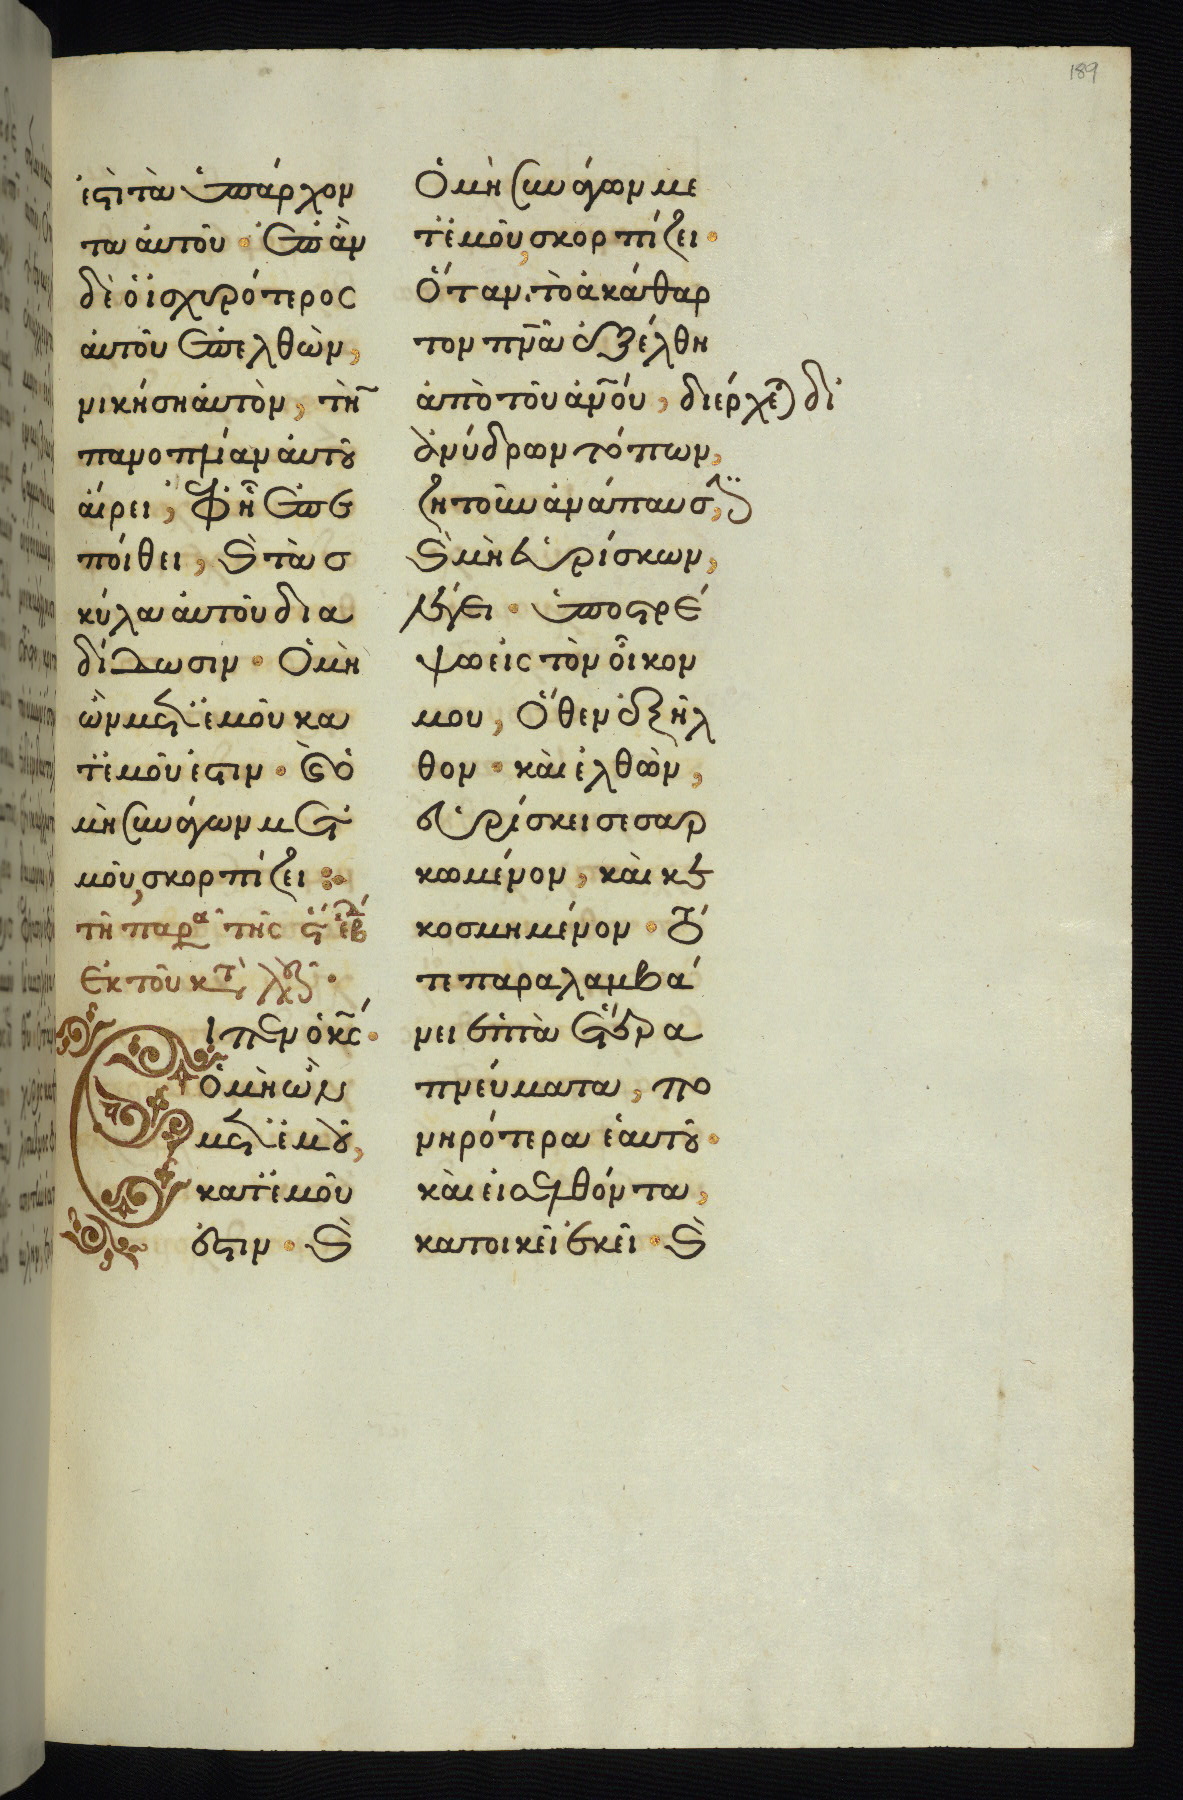 189
ἐστὶ τὰ ὑπάρχον
τα αὐτοῦ · ἐπὰν
δὲ ὁ ἰσχυρότερος
αὐτοῦ ἐπελθὼν,
νικήση αὐτὸν, τὴν
πανοπλίαν αὐτοῦ
αἴρει, ἐφ ἧ ἐπε
ποίθει, καὶ τὰ σ
κύλα αὐτοῦ δια
δίδωσιν · Ὁ μὴ
ὢν μετ ἐμοῦ κα
τ ἐμοῦ ἐστιν · καὶ ὁ
μὴ συνάγων μετ ἐ
μοῦ, σκορπίζει :
τῆ παρα τῆς ϛ ἑβ
Ἐκ τοῦ κατ λχ ·
Εἶπεν ὁ κς ·
Ὁ μὴ ὢν
μετ ἐμοῦ,
κατ ἐμοῦ
ἐστιν · καὶ
Ὁ μὴ συνάγων με
τ ἐμοῦ, σκορπίζει ·
Ὅταν τὸ ἀκάθαρ
τον πνα ἐξέλθη
ἀπὸ τοῦ ανου, διέρχεται δι
ἀνύδρων τόπων,
ζητοῦν ἀνάπαυσιν,
καὶ μὴ εὑρίσκων,
λέγει · ὑποστρέ
ψω εἰς τὸν οἶκον
μου, Ὅθεν ἐξῆλ
θον · καὶ ἐλθὼν,
εὑρίσκει σεσαρ
κωμένον, καὶ κε
κοσμημένον · τό
τε παραλαμβά
νει ἑπτὰ ἕτερα
πνεύματα, πο
νηρότερα ἑαυτοῦ ·
καὶ εἰσελθόντα,
κατοικεῖ ἐκεῖ · καὶ